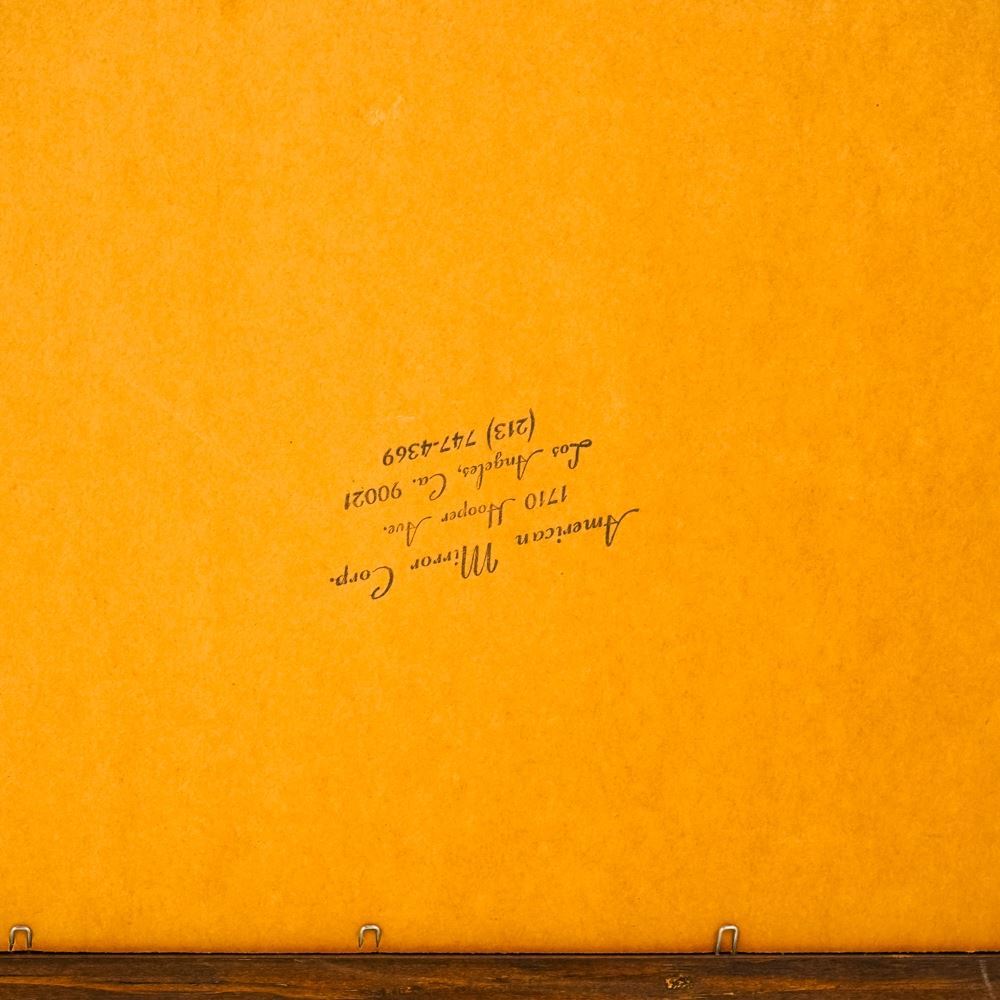 American Mirror Corp.
1710 Hooper Ave.
Los Angeles, Ca. 90021
(213) 747-4369